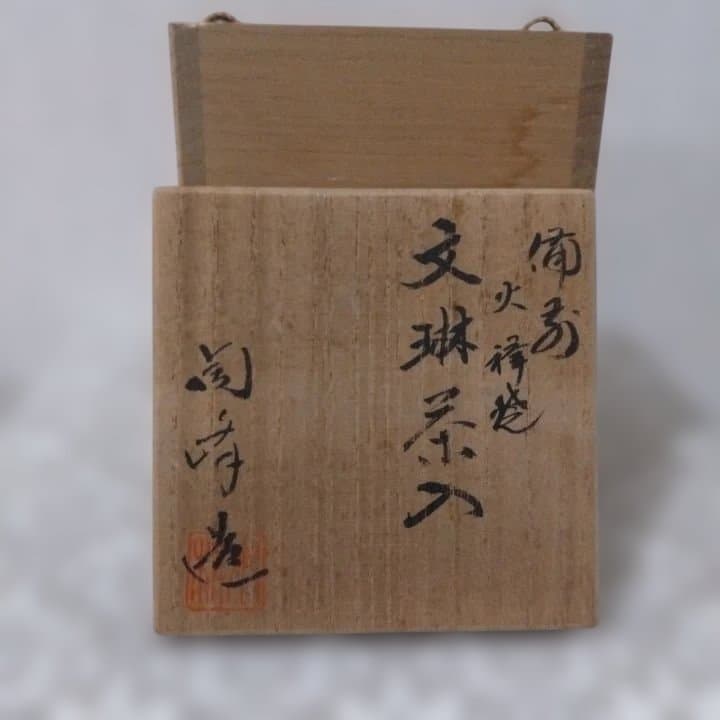 備前
火襷焼
文琳茶入
匋峰造